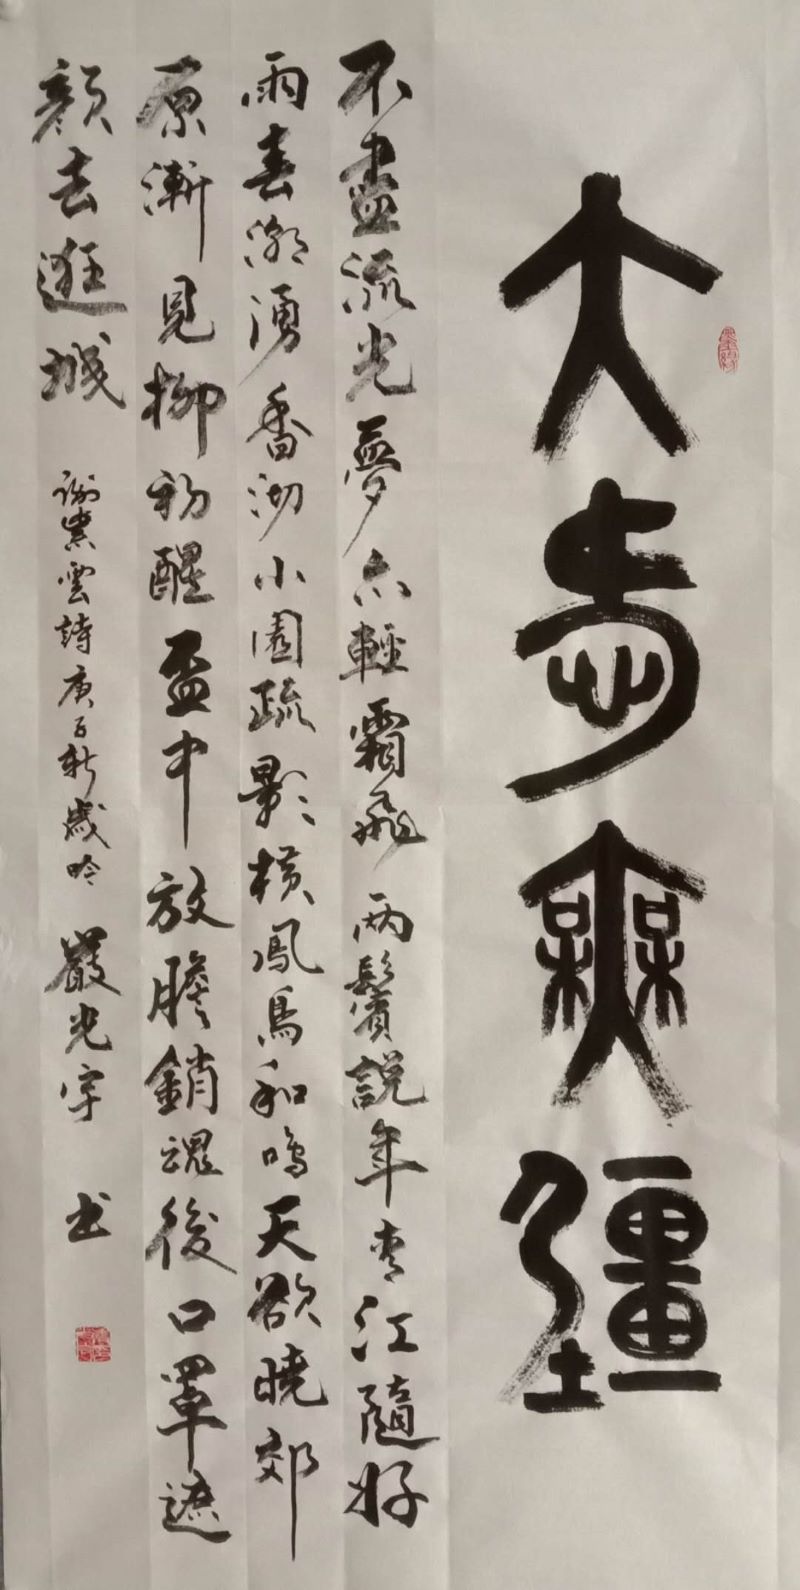 大步無疆
不盡流光夢亦輕霜飛兩鬢說年青江隨好
雨春潮湧香沏小園疏影橫鳳鳥和鳴天欲曉郊
原漸見柳初醒盃中放膽銷魂後口罩遮
顏去逛城
謝崇雲詩庚子新歲吟 嚴光宇 书